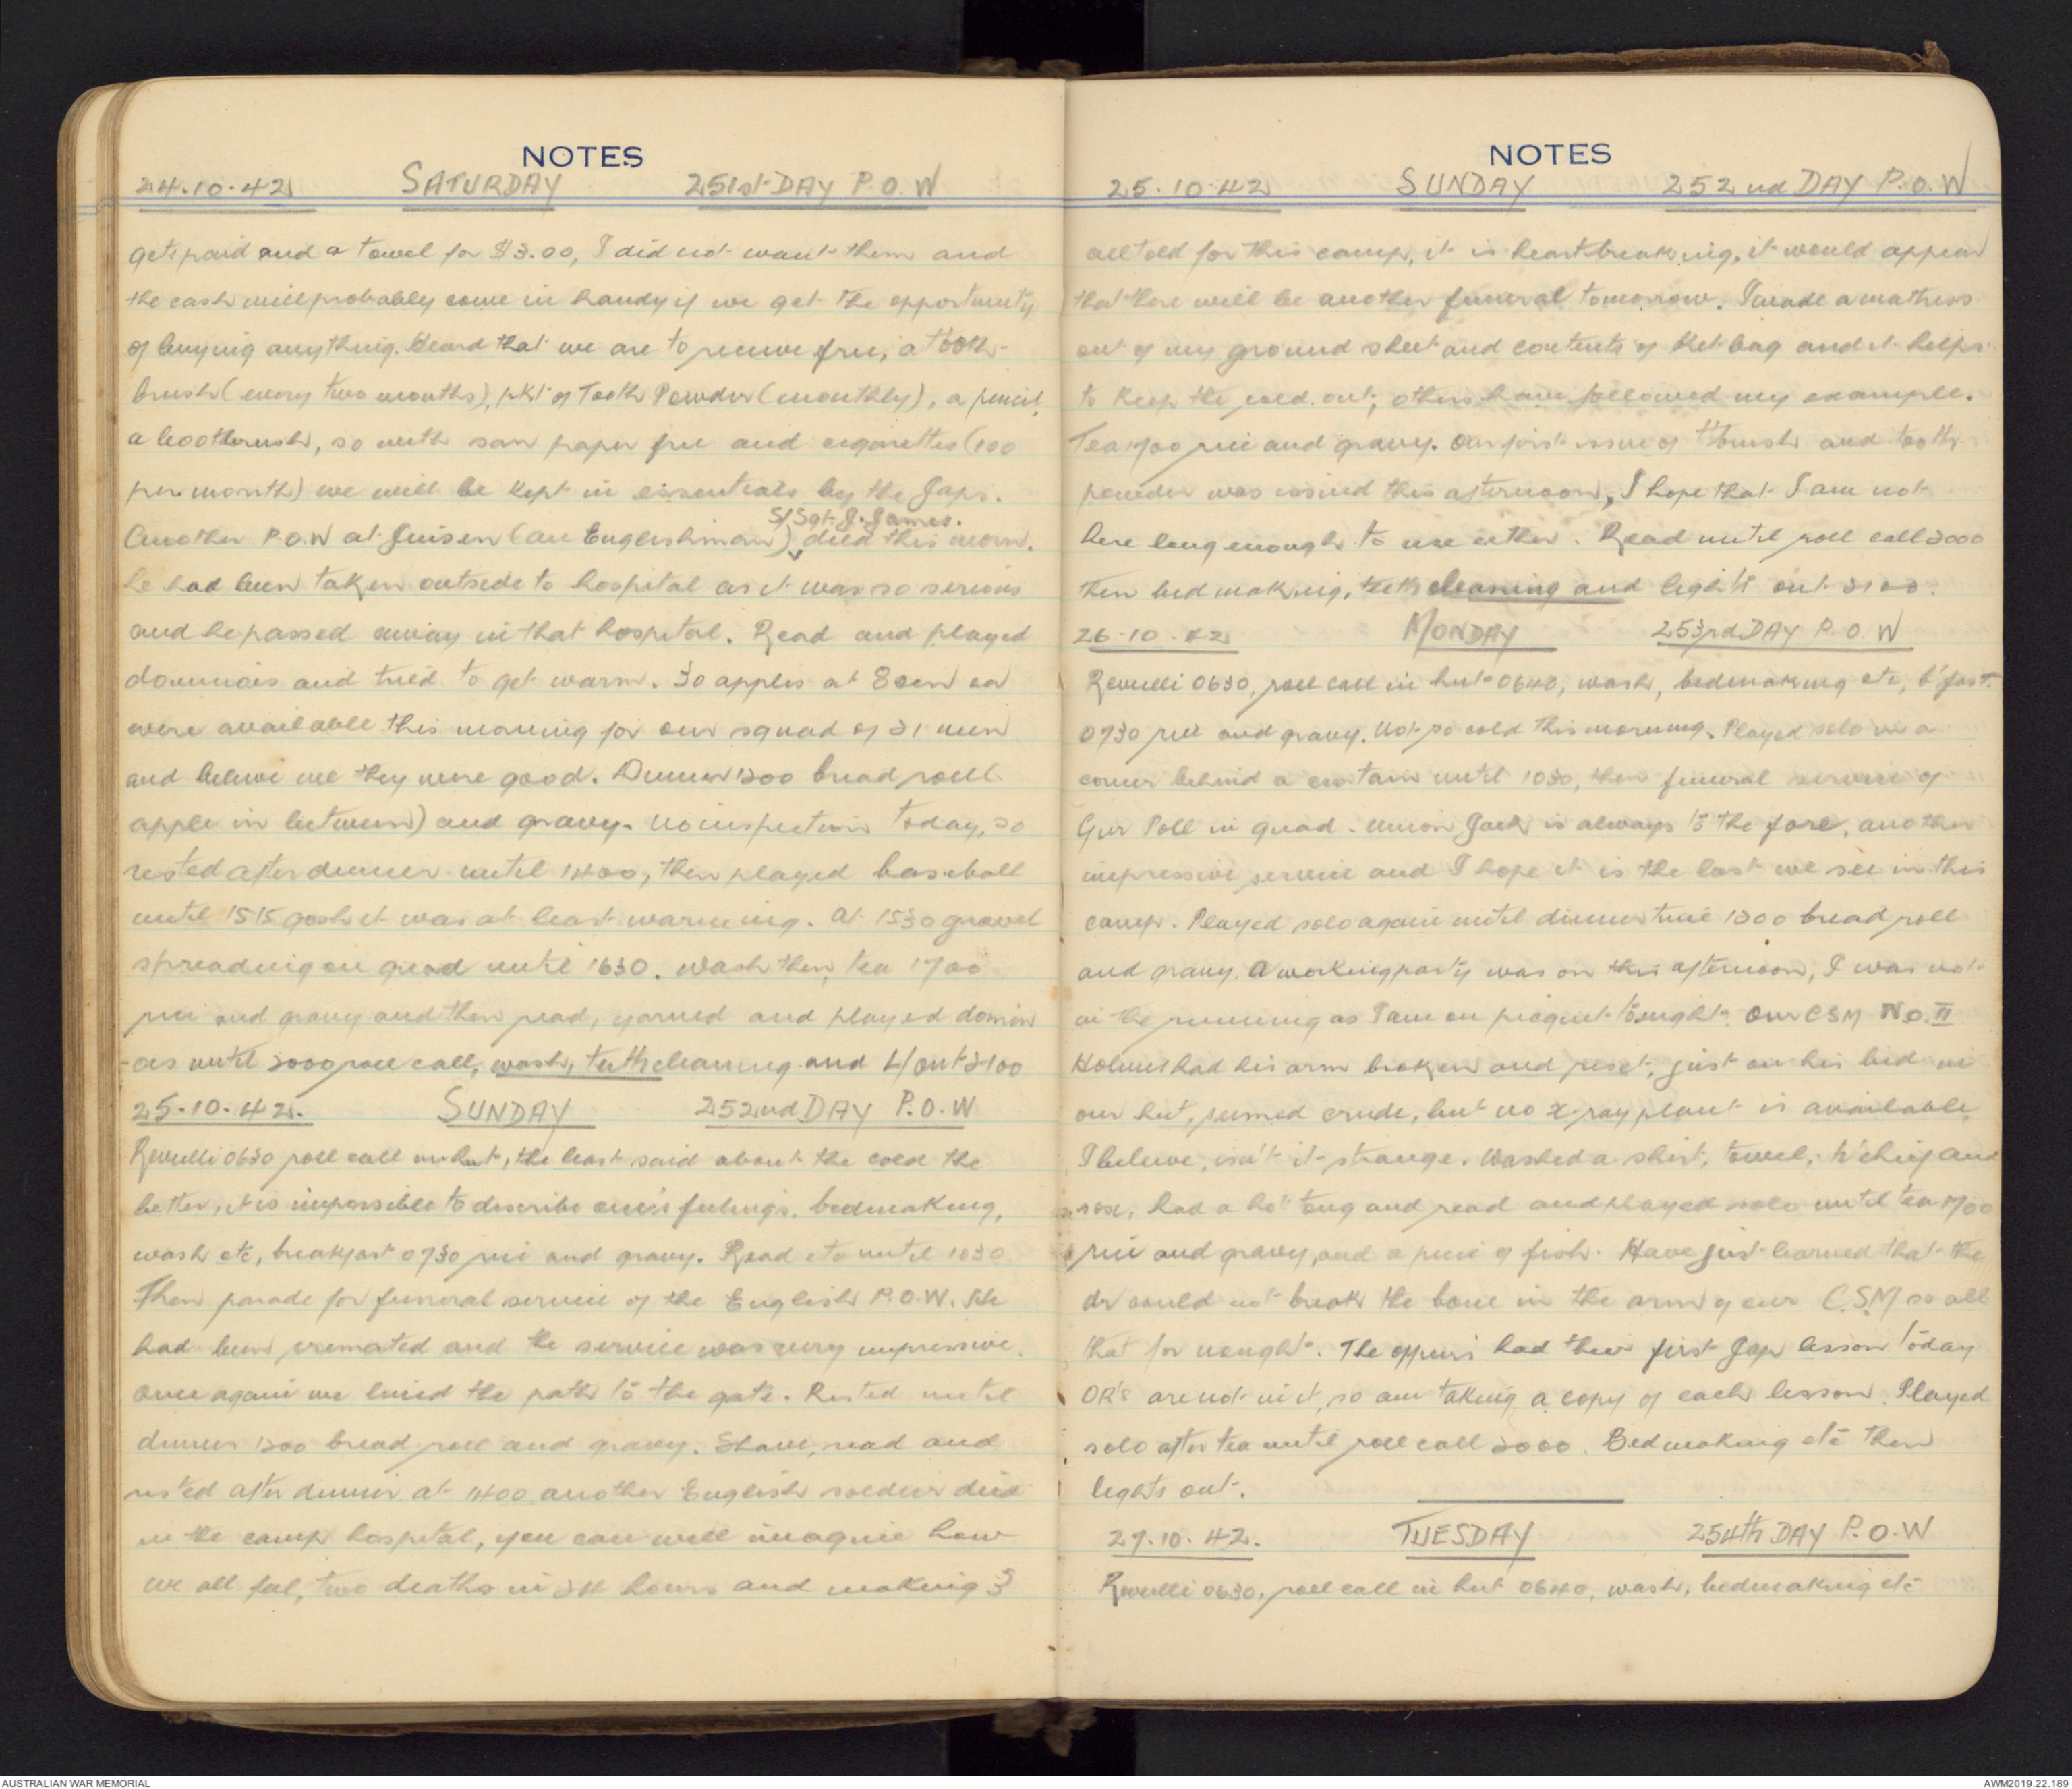 NOTES
24.10.42 SATURDAY 251st DAY P.O.W
gets paid and a towel for $3.00, I did not want them and
the cash will probably come in handy if we get the opportunity
of buying anything. Heard that we are to receive free, a tooth-
brush (every two months), pkt of Tooth Powder (monthly), a pencil,
a bootbrush, so with san paper free and cigarettes (100
per month) we will be kept in essentials by the Japs.
S/Sgt. J. James.
Another P.O.W at Jinsen (an Englishman) died this morn.
he had been taken outside to hospital as it was so serious
and he passed away in that hospital. Read and played
dominois and tried to get warm. 30 apples at 8 sen ea
were available this morning for our squad of 31 men
and believe me they were good. Dinner 1200 bread roll
apple in between) and gravy. No inspection today, so
rested after dinner until 1400, then played baseball
until 1515 gosh it was at least warming. At 1530 gravel
spreading on quad until 1630. Wash then, tea 1700
rice and gravy and then read, yarned and played domin
-oes until 2000 roll call, wash, teeth cleaning and L/out 2100
25.10.42. SUNDAY 252nd DAY P.O.W
Reveilli 0630 roll call in hut, the least said about the cold the
better, it is impossible to describe one's feelings. bedmaking,
wash etc, breakfast 0730 rice and gravy. Read etc until 1030
Then parade for funeral service of the English P.O.W. He
had been cremated and the service was very impressive.
Once again we lined the path to the gate. Rested until
dinner 1200 bread roll and gravy. Shave, read and
rested after dinner. at 1400 another English soldier died
in the camp hospital, you can well imagine how
we all feel, two deaths in 24 hours and making 3
NOTES
25.10.42 SUNDAY 252nd DAY P.O.W
all told for this camp, it is heartbreaking, it would appear
that there will be another funeral tomorrow. I made a mattress
out of my ground sheet and contents of kit bag and it helps
to keep the cold out, others have followed my example.
Tea 1700 rice and gravy. Our first issue of t'brush and tooth
powder was issued this afternoon, I hope that I am not
here long enough to use either. Read until roll call 2000
then bed making, teeth cleaning and lights out 2100.
26.10.42 MONDAY 253rd DAY P.O.W
Reveilli 0630, roll call in hut 0640, wash, bedmaking etc, b'fast
0730 rice and gravy. Not so cold this morning. Played solo in a
corner behind a curtain until 1030, then funeral service of
Gnr Poll in quad. Union Jack is always to the fore, another
impressive service and I hope it is the last we see in this
camp. Played solo again until dinner time 1200 bread roll
and gravy. A working party was on this afternoon, I was not
in the running as I am on picquet tonight. Our CSM No. II
Holmes had his arm broken and reset, just on his bed in
our hut, seemed crude, but no x-ray plant is available
I believe, isn't it strange. Washed a shirt, towel, h'chief and
sox, had a hot tong and read and played solo until tea 1700
rice and gravy, and a piece of fish. Have just learned that the
dr could not break the bone in the arm of our C.S.M so all
that for nought. The officers had their first Jap lesson today
OR's are not in it, so am taking a copy of each lesson. Played
solo after tea until roll call 2000. Bedmaking etc then
lights out.
27.10.42. TUESDAY 254th DAY P.O.W
Reveilli 0630, roll call in hut 0640, wash, bedmaking etc
AUSTRALIAN WAR MEMORIAL
AWM2019.22.189